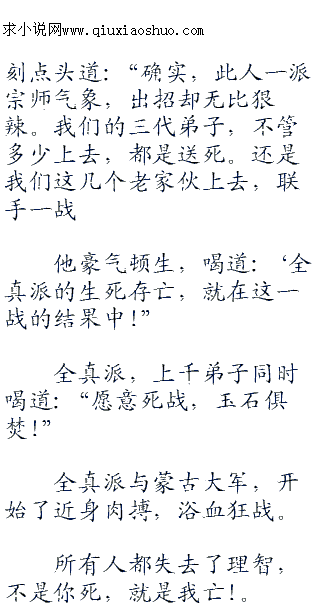 求小说网www.qiuxiaoshuo.com
刻点头道：“确实，此人一派
宗师气象，出招却无比狠
辣。我们的三代弟子，不管
多少上去，都是送死。还是
我们这几个老家伙上去，联
手一战
他豪气顿生，喝道：‘全
真派的生死存亡，就在这一
战的结果中！”
全真派，上千弟子同时
喝道：“愿意死战，玉石俱
焚！”
全真派与蒙古大军，开
始了近身肉搏，浴血狂战。
所有人都失去了理智，
不是你死，就是我亡！。